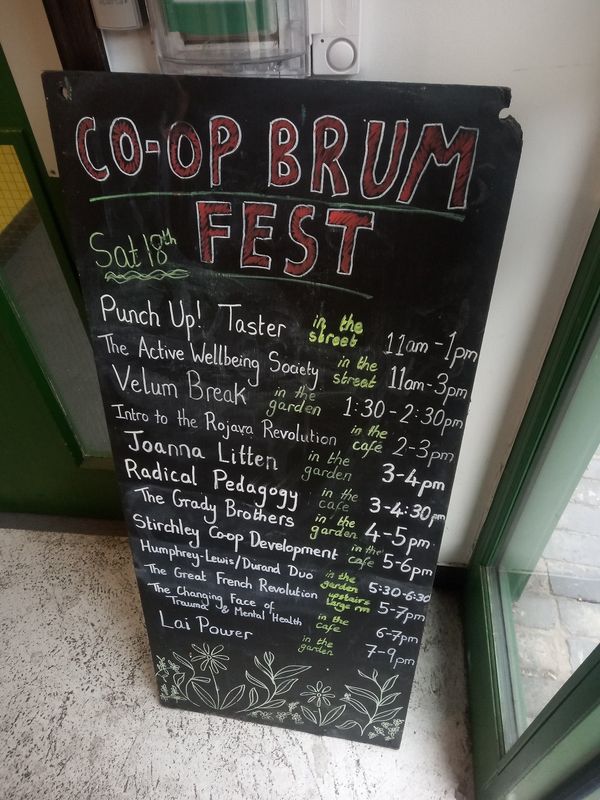 CO-OP BRUM
FEST
Sat 18th
Punch Up! Taster in the street 11am - 1pm
The Active Wellbeing Society in the street 11am - 3pm
Velum Break in the garden 1:30 - 2:30pm
Intro to the Rojava Revolution in the café 2-3pm
Joanna Litten in the garden 3-4pm
Radical Pedagogy in the cafe 3-4:30pm
The Grady Brothers in the garden 4-5pm
Stirchley Co-op Development in the cafe 5-6pm
Humphrey-Lewis/Durand Duo in the garden 5:30-6:30
The Great French Revolution upstairs large rm 5-7pm
The Changing Face of
Trauma & Mental Health in the cafe 6-7pm
Lai Power in the garden 7-9pm